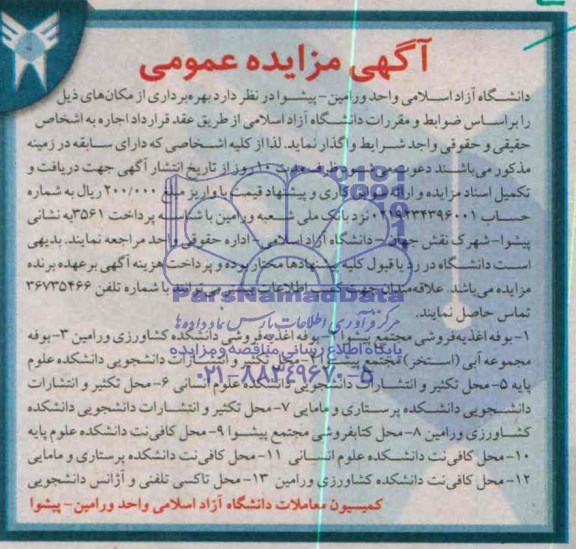 آگهی مزایده عمومی
دانشگاه آزاد اسلامی واحد ورامین- پیشوا در نظر دارد بهره‌برداری از مکان‌های ذیل
را براساس ضوابط و مقررات دانشگاه آزاد اسلامی از طریق عقد قرارداد اجاره به اشخاص
حقیقی و حقوقی واجد شرایط واگذار نماید. لذا از کلیه اشخاصی که دارای سابقه در زمینه
مذکور می‌باشند دعوت می‌شود ظرف مدت ۱۰ روز از تاریخ انتشار آگهی جهت دریافت و
تکمیل اسناد مزایده و ارائه کاری و پیشنهاد قیمت با واریز مبلغ ۲۰۰/۰۰۰ ریال به شماره
حساب نزد بانک ملی شعبه ورامین با شناسه پرداخت ۳۵۶۱ به نشانی
پیشوا- شهرک نقش جهان- دانشگاه آزاد اسلامی- اداره حقوقی واحد مراجعه نمایند. بدیهی
است دانشگاه در رد یا قبول کلیه پیشنهادها مختار بوده و پرداخت هزینه آگهی برعهده برنده
مزایده می‌باشد. علاقه‌مندان جهت کسب اطلاعات بیشتر می‌توانند با شماره تلفن ۳۶۷۳۵۴۶۶
تماس حاصل نمایند.
ParsNamadData
مرکز فرآوری اطلاعات پارس نماد داده‌ها
۱- بوفه اغذیه‌فروشی مجتمع پیشوا ۲- بوفه اغذیه‌فروشی دانشکده کشاورزی ورامین ۳- بوفه
پایگاه اطلاع رسانی مناقصه و مزایده
مجموعه آبی (استخر) مجتمع پیشوا ۴- محل تکثیر و انتشارات دانشجویی دانشکده علوم
۰۲۱-۸۸۳۴۹۶۷۰-۵
پایه ۵- محل تکثیر و انتشارات دانشجویی دانشکده علوم انسانی ۶- محل تکثیر و انتشارات
دانشجویی دانشکده پرستاری و مامایی ۷- محل تکثیر و انتشارات دانشجویی دانشکده
کشاورزی ورامین ۸- محل کتابفروشی مجتمع پیشوا ۹- محل کافی‌نت دانشکده علوم پایه
۱۰- محل کافی‌نت دانشکده علوم انسانی ۱۱- محل کافی‌نت دانشکده پرستاری و مامایی
۱۲- محل کافی‌نت دانشکده کشاورزی ورامین ۱۳- محل تاکسی تلفنی و آژانس دانشجویی
کمیسیون معاملات دانشگاه آزاد اسلامی واحد ورامین- پیشوا